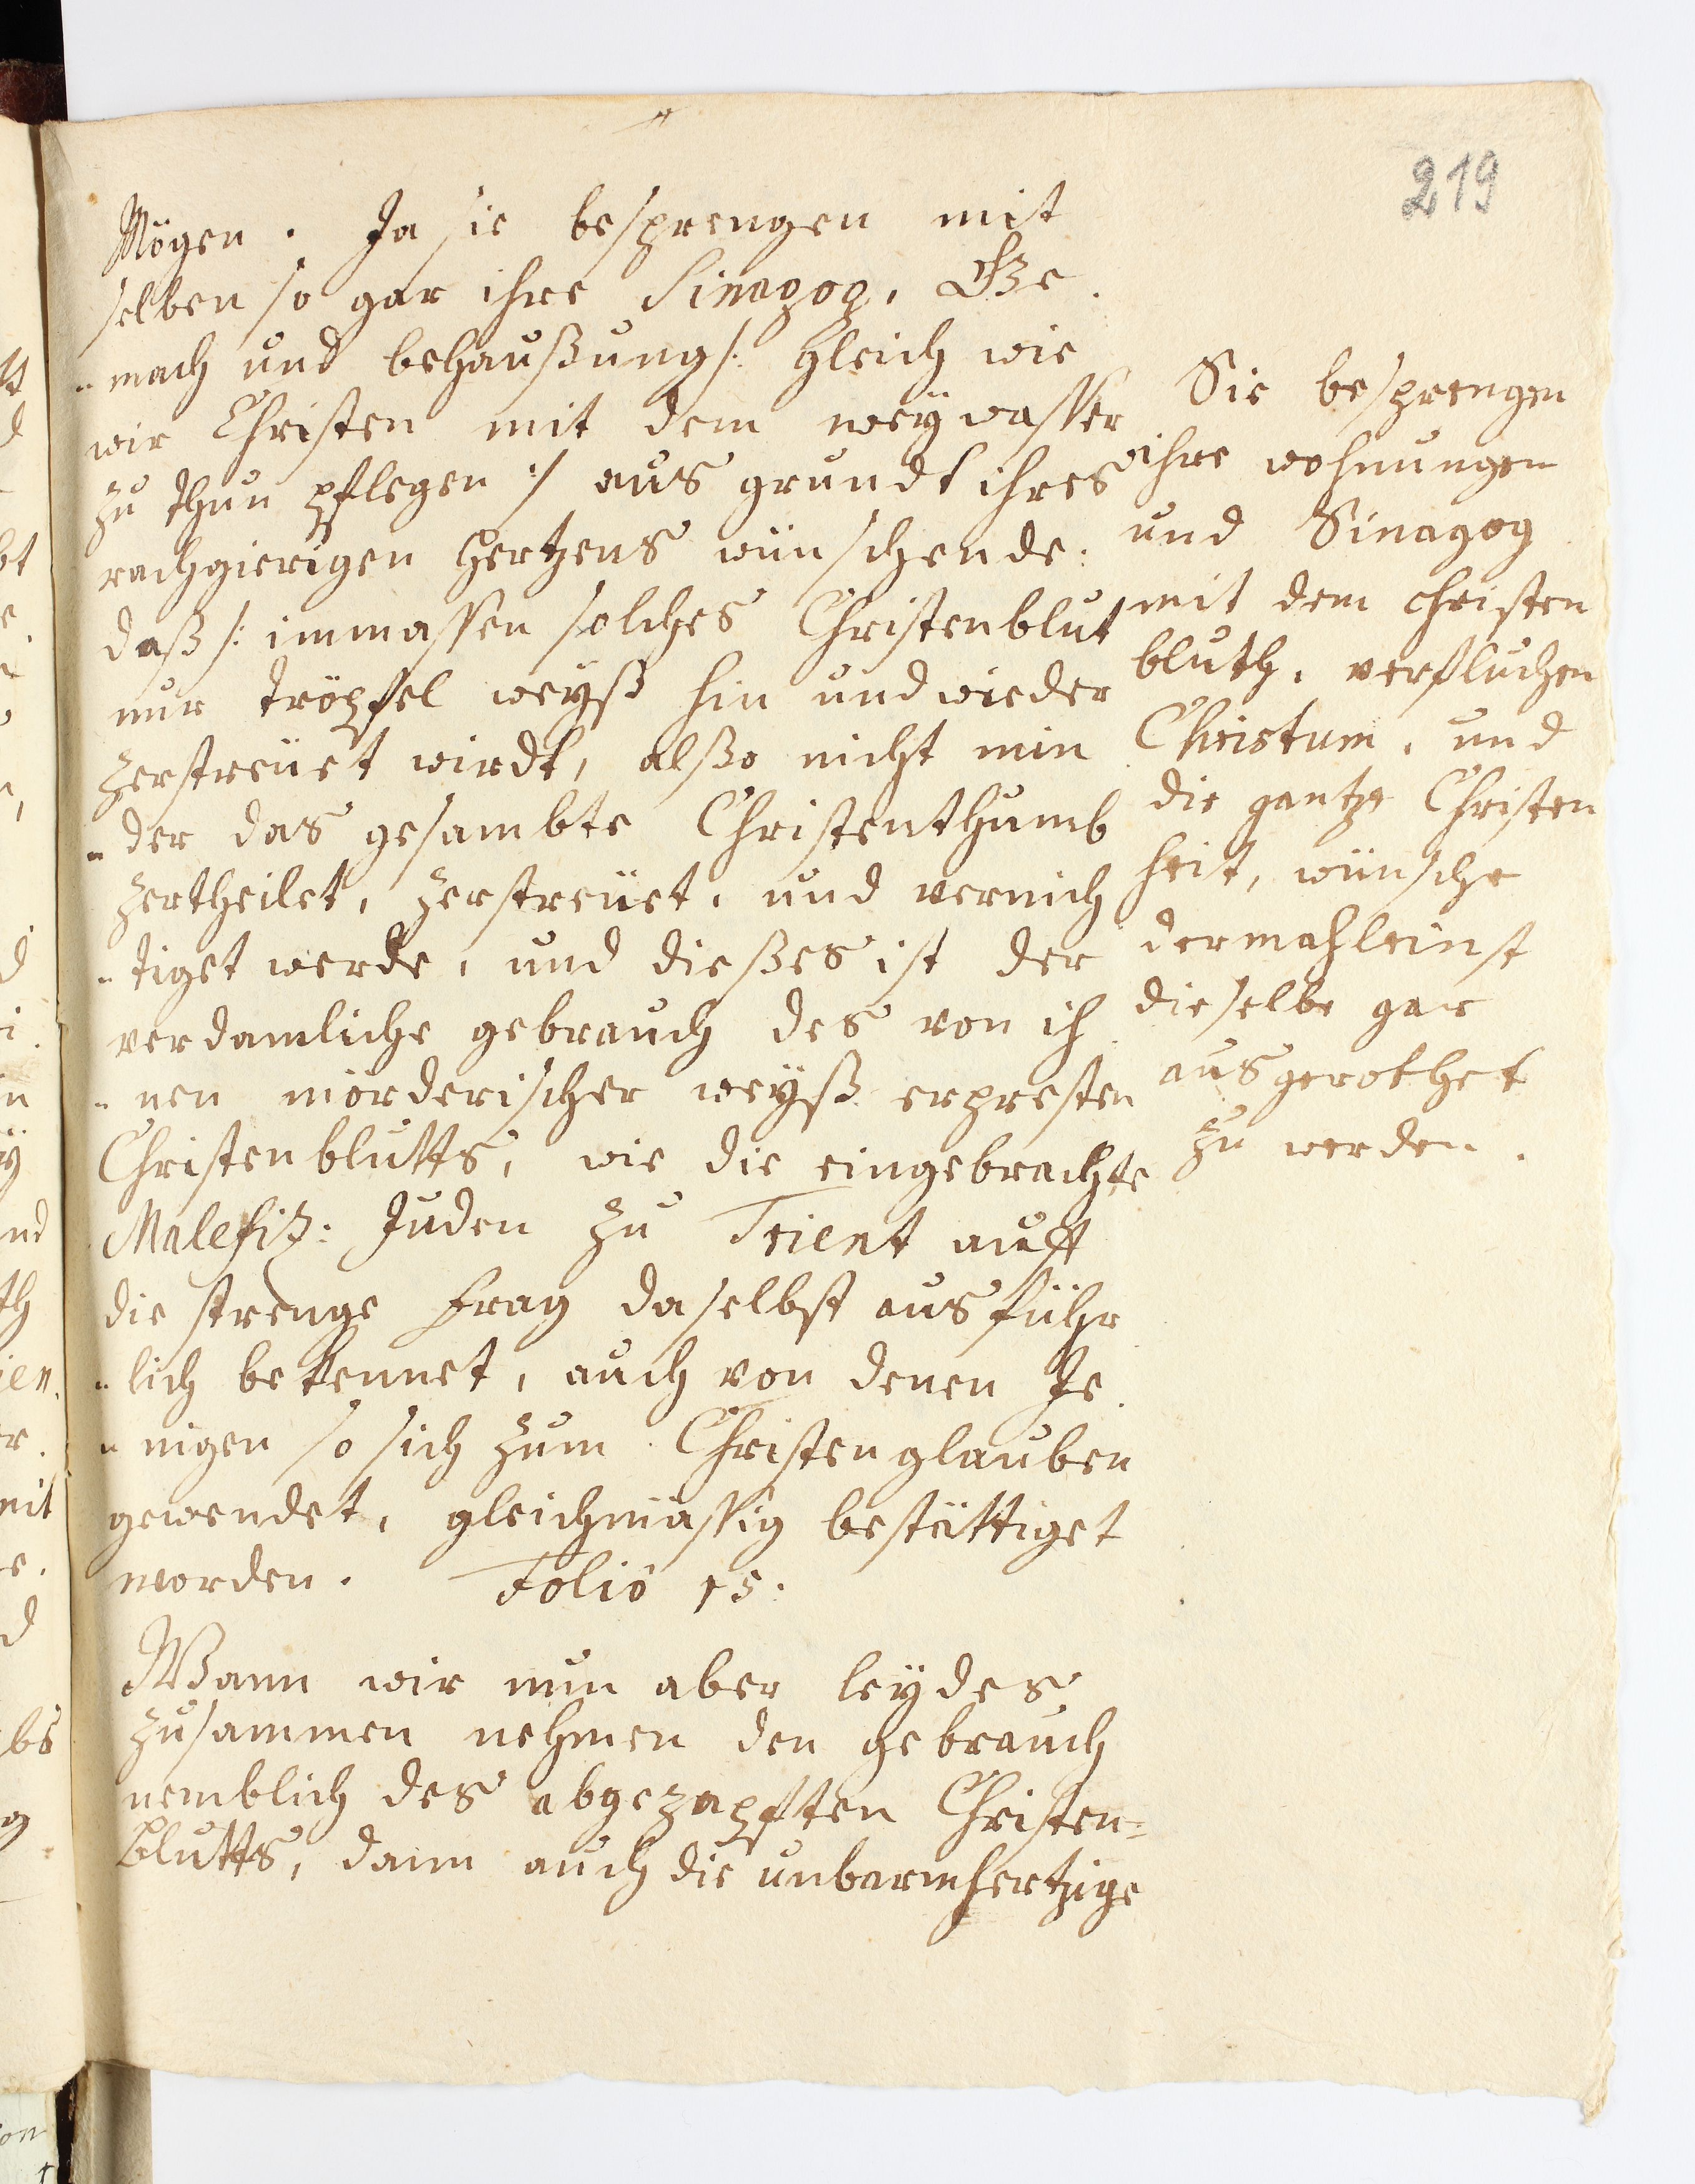 219
Mögen. Ja sie besprengen mit
selben so gar ihre Sinagog, Ge
mach und behaußung /: Gleich wie
wir Christen mit dem weÿwasser
zu thun pflegen :/ aus grundt ihres
rachgierigen Hertzens wünschende:
daß /: immassen solches Christenblut
nur tröpfel weÿß hin und wieder
zerstreüet wirdt, alßo nicht min
der das gesambte Christenthumb
zertheilet, zerstreüet, und vernich
tiget werde, und dießes ist der
verdamliche gebrauch des von ih
nen mörderischer weÿß erpresten
Christenblutts, wie die eingebrachte
Malefiz: Juden zu Trient auff
die strenge Frag daselbst ausführ
lich bekennet, auch von denen Je
nigen so sich zum Christenglauben
gewendet, gleichmässig bestättiget
worden. Folio 15:
Wann wir nun aber leÿdes
zusammen nehmen den gebrauch
nemblich des abgezapften Christen=
blutts, dann auch die unbarmhertzige
Sie besprengen
ihre wohnungen
und Sinagog
mit dem christen
bluth, verfluchen
Christum, und
die gantze Christen
heit, wünsche
dermahleinst
dieselbe gar
ausgerothet
zu werden.